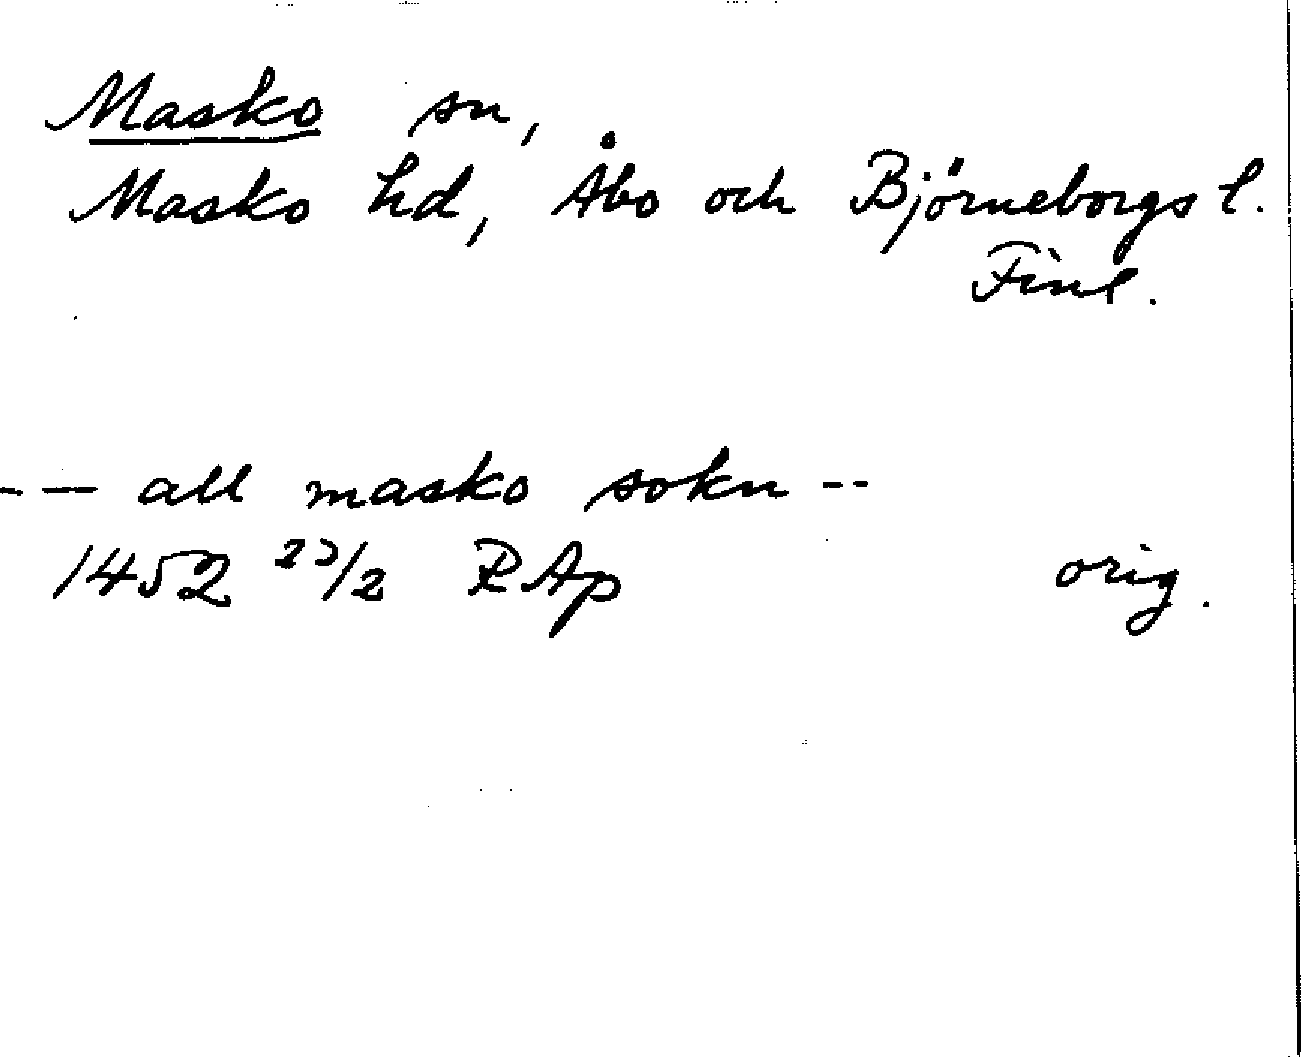 Masko sn,
Masko hd, Åbo och Björneborgs l.
Finl.
-- all masko sokn --
1452 23/2 RAp orig.